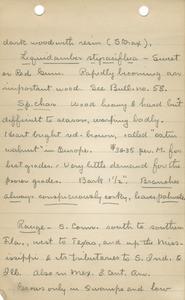 dark wood with resin (Storax).
Liquidambar styraciflua – Sweet
or Red Gum. Rapidly becoming an
important wood. See Bulletin 58.
Sp. char. Wood heavy & hard but
difficult to season, warping badly.
Heart bright red-brown, called "satin
walnut" in Europe. $30-35 per M. for
best grades. Very little demand for the
poorer grades. Bark 1½". Branches
always conspicuously corky, leaves palmate
Range – S. Conn. south to southern
Fla., west to Texas, and up the Miss-
issippi & its tributaries to S. Ind. &
Ill. Also in Mex. & Cent. Am.
Grows only in swamps and low